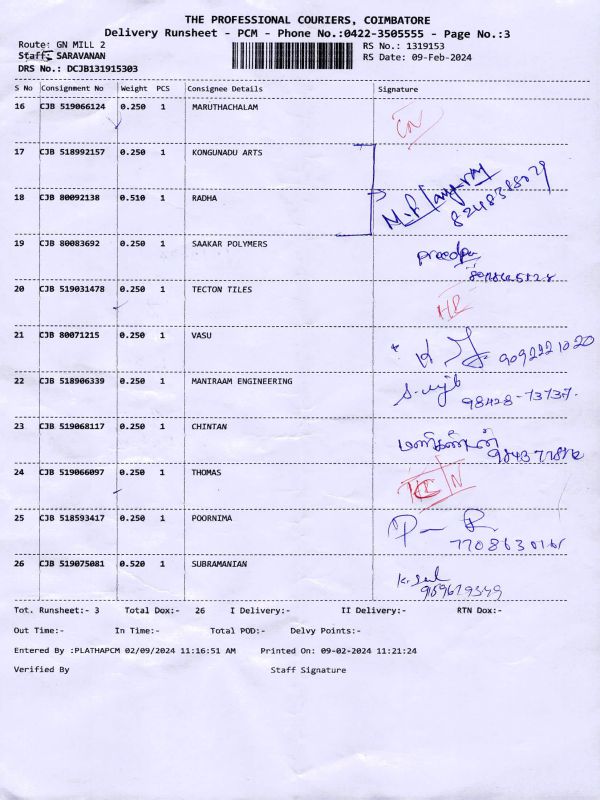 THE PROFESSIONAL COURIERS, COIMBATORE
Delivery Runsheet - PCM - Phone No.:0422-3505555 - Page No.:3
Route: GN MILL 2
RS No.: 1319153
Staff: SARAVANAN
RS Date: 09-Feb-2024
DRS No.: DCJB131915303
S No Consignment No Weight PCS Consignee Details Signature
16 CJB 519066124 0.250 1 MARUTHACHALAM
17 CJB 518992157 0.250 1 KONGUNADU ARTS
18 CJB 80092138 0.510 1 RADHA
19 CJB 80083692 0.250 1 SAAKAR POLYMERS
20 CJB 519031478 0.250 1 TECTON TILES
21 CJB 80071215 0.250 1 VASU
9092221020
22 CJB 518906339 0.250 1 MANIRAAM ENGINEERING
98428-73737.
23 CJB 519068117 0.250 1 CHINTAN
மணிகண்டன்
24 CJB 519066097 0.250 1 THOMAS
25 CJB 518593417 0.250 1 POORNIMA
26 CJB 519075081 0.520 1 SUBRAMANIAN
Tot. Runsheet:- 3 Total Dox:- 26 I Delivery:- II Delivery:- RTN Dox:-
Out Time:- In Time:- Total POD:- Delvy Points:-
Entered By :PLATHAPCM 02/09/2024 11:16:51 AM Printed On: 09-02-2024 11:21:24
Verified By Staff Signature